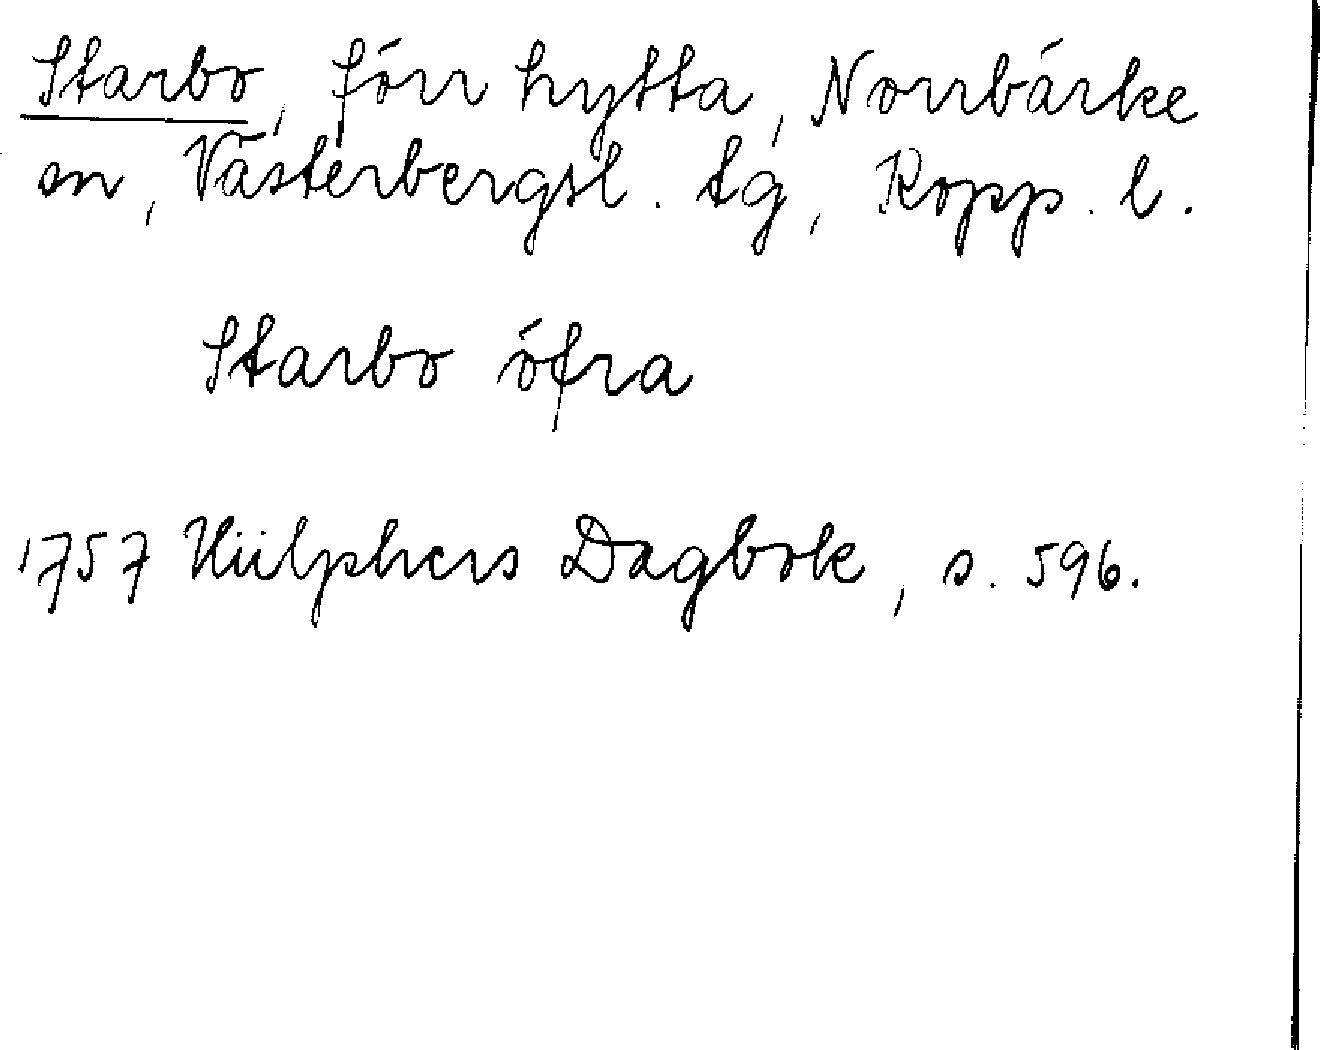 Starbo, förr hytta, Norrbärke
sn, Västerbergsl. tg, Kopp. l.
Starbo öfra
1757 Hülphers Dagbok, s. 596.